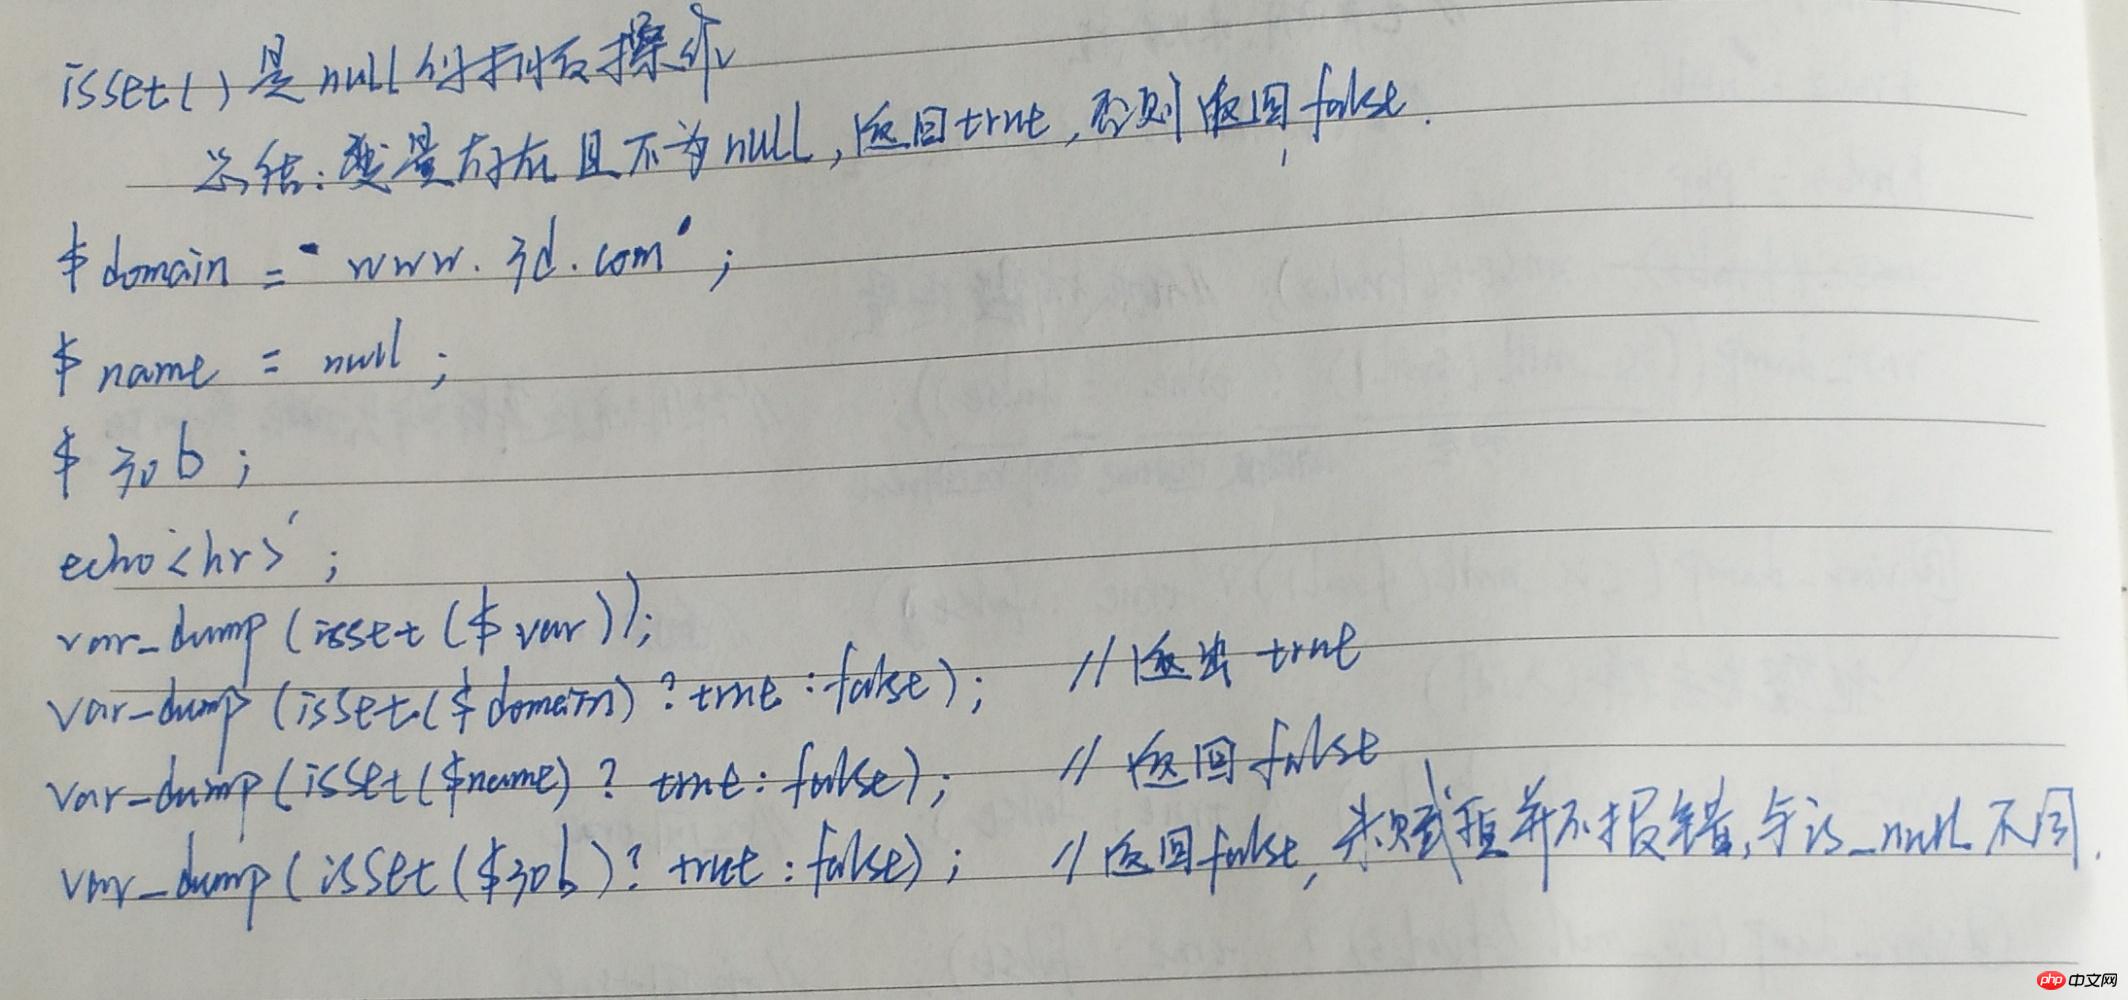 isset()是null的相反操作
总结:变量存在且不为null,返回true,否则返回false.
$domain = 'www.3d.com';
$name = null;
$job;
echo '<hr>';
var_dump(isset($var));
var_dump(isset($domain)?true:false); //返出true
var_dump(isset($name)?true:false); //返回false
var_dump(isset($job)?true:false); //返回false,未赋值并不报错,与is_null不同.
php中文网